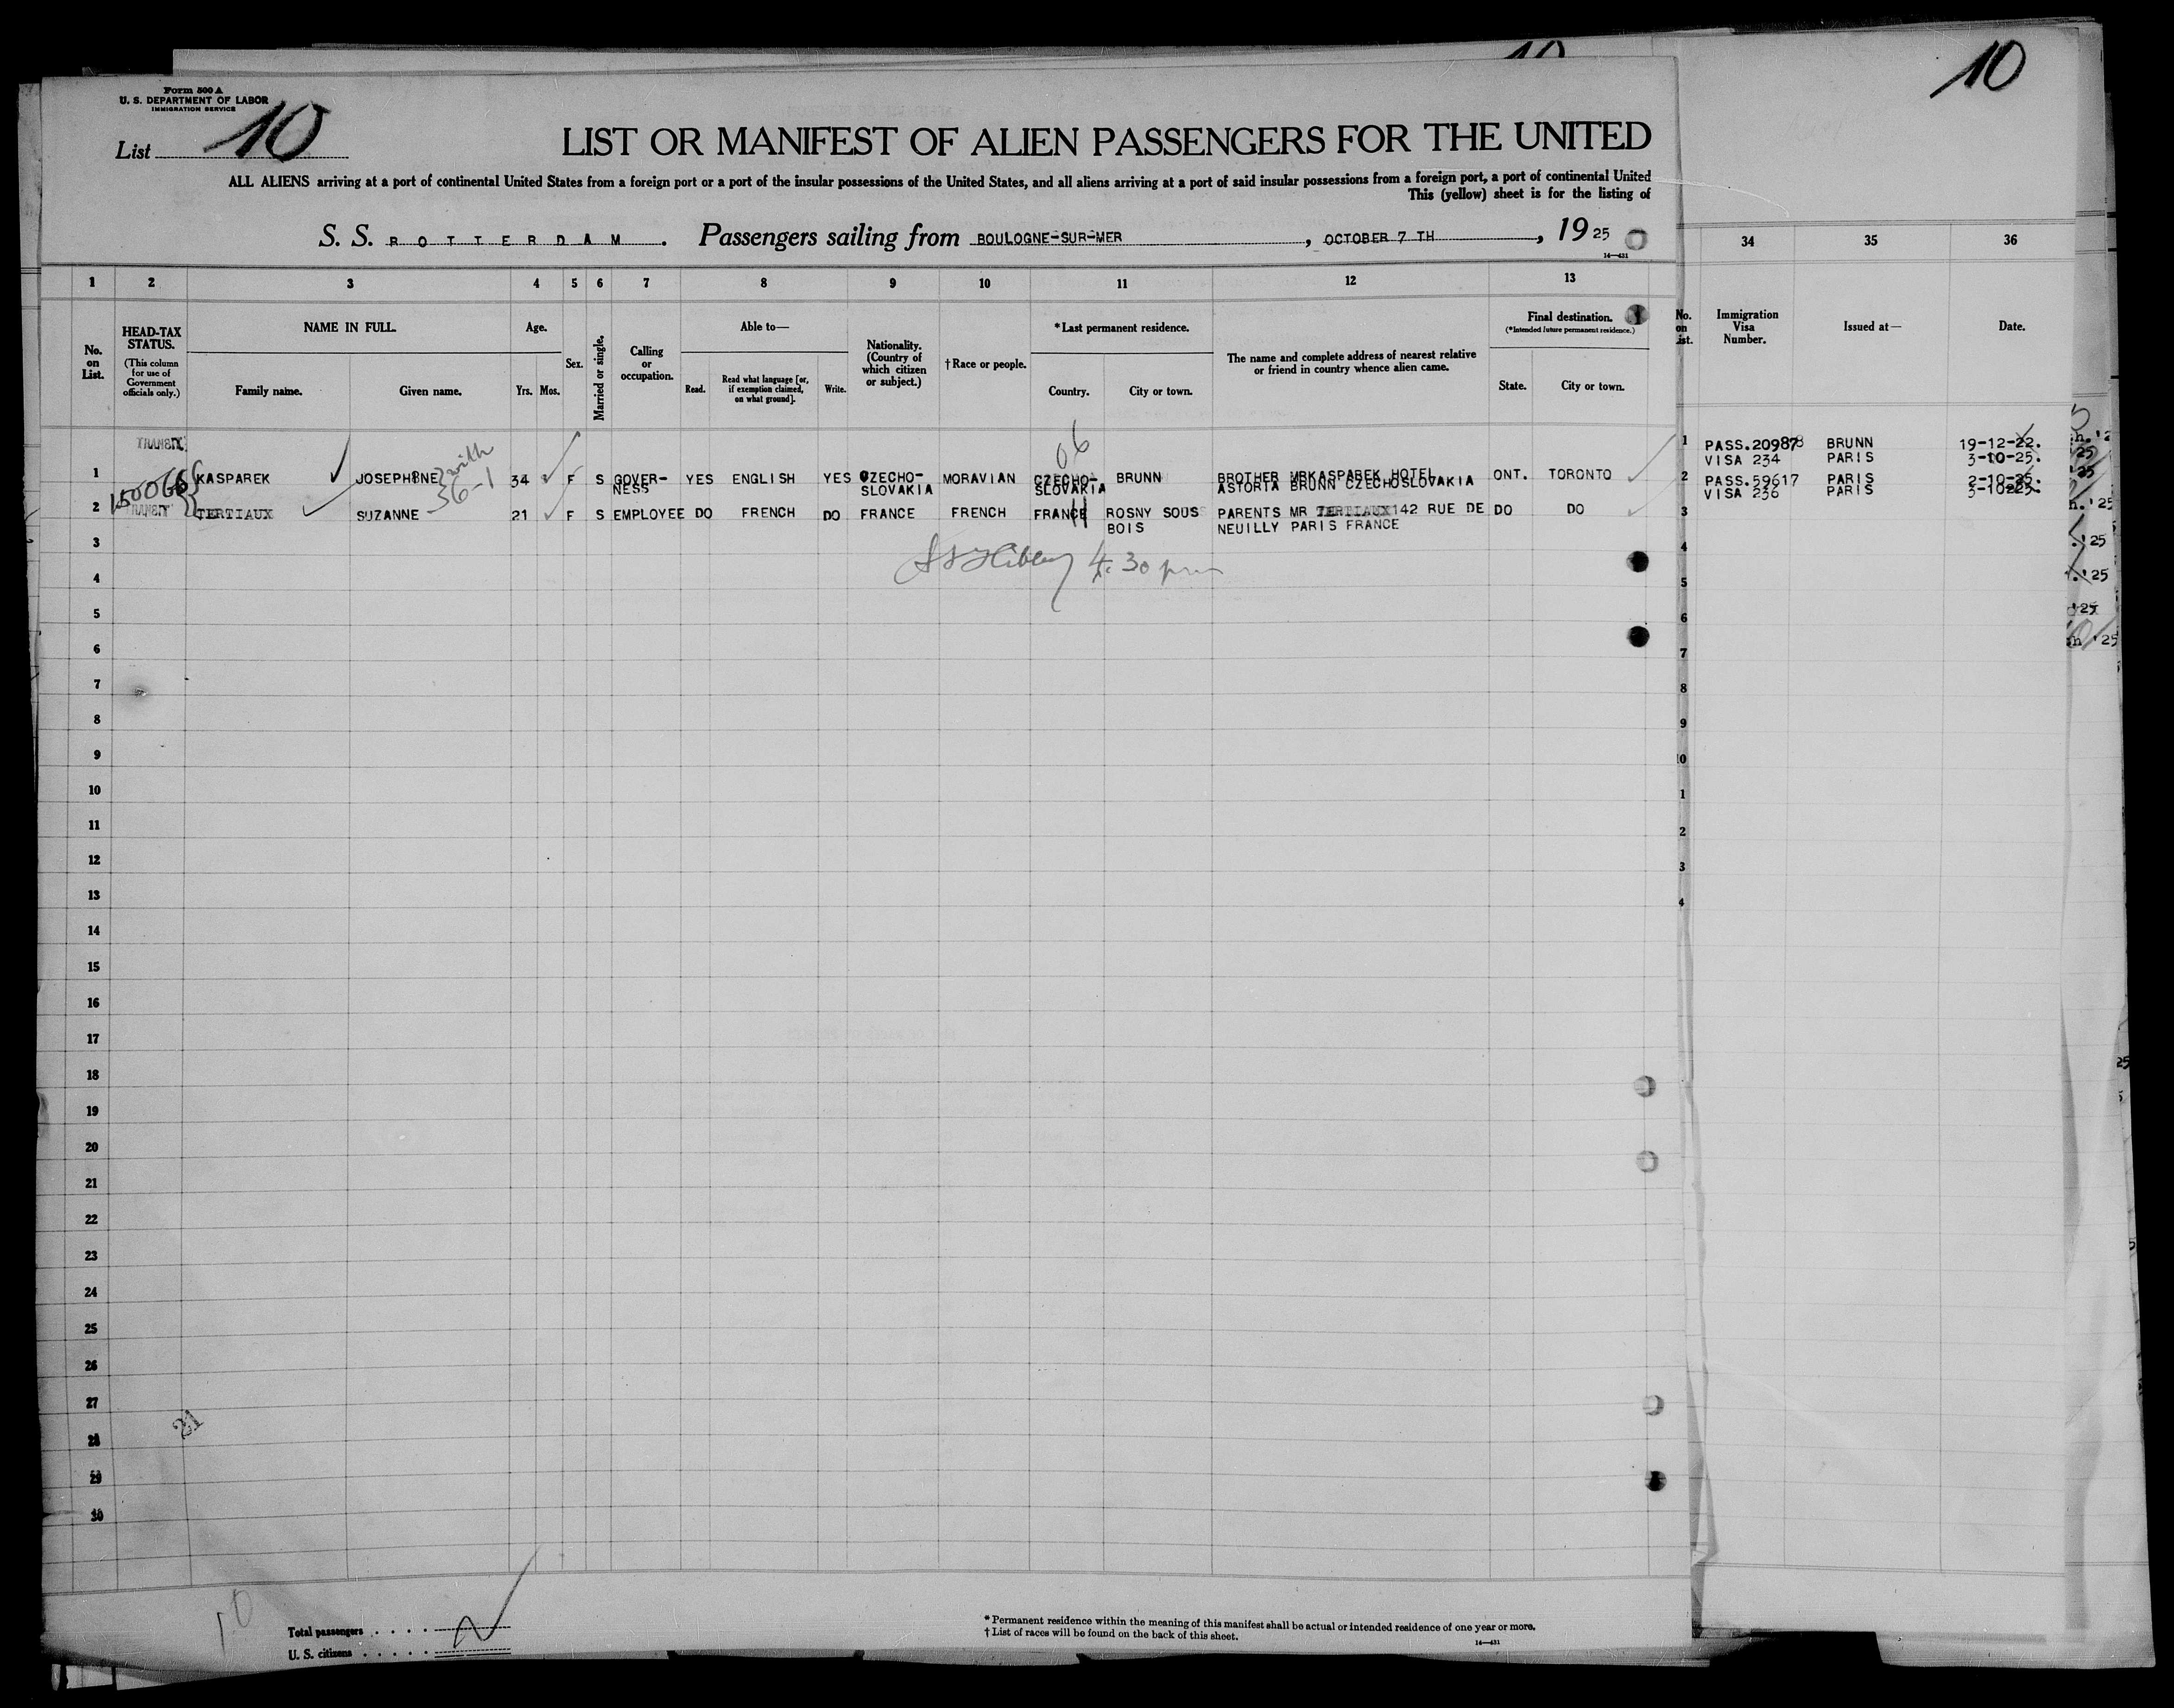 10
10
Form 500 A
U. S. DEPARTMENT OF LABOR
IMMIGRATION SERVICE
List 10
LIST OR MANIFEST OF ALIEN PASSENGERS FOR THE UNITED
ALL ALIENS arriving at a port of continental United States from a foreign port or a port of the insular possessions of the United States, and all aliens arriving at a port of said insular possessions from a foreign port, a port of continental United
This (yellow) sheet is for the listing of
S. S. ROTTERDAM. Passengers sailing from BOULOGNE-SUR-MER, OCTOBER 7 TH, 19 25
14—431
1 2 3 4 5 6 7 8 9 10 11 12 13
34 35 36
No. on List.
HEAD-TAX STATUS.
(This column for use of Government officials only.)
NAME IN FULL.
Family name. Given name.
Age.
Yrs. Mos.
Sex.
Married or single.
Calling or occupation.
Able to—
Read. Read what language [or, if exemption claimed, on what ground]. Write.
Nationality. (Country of which citizen or subject.)
†Race or people.
*Last permanent residence.
Country. City or town.
The name and complete address of nearest relative or friend in country whence alien came.
Final destination.
(*Intended future permanent residence.)
State. City or town.
No. on List.
Immigration Visa Number.
Issued at—
Date.
TRANSIT
06
with
56-1
1 KASPAREK JOSEPHINE 34 F S GOVER-NESS YES ENGLISH YES CZECHO-SLOVAKIA MORAVIAN CZECHO-SLOVAKIA BRUNN BROTHER MRKASPAREK HOTEL ASTORIA BRUNN CZECHOSLOVAKIA ONT. TORONTO
150066
TRANSIT
2 TERTIAUX SUZANNE 21 F S EMPLOYEE DO FRENCH DO FRANCE FRENCH FRANCE ROSNY SOUS BOIS PARENTS MR TERTIAUX 142 RUE DE NEUILLY PARIS FRANCE DO DO
1 PASS.20987 BRUNN 19-12-22.
VISA 234 PARIS 3-10-25.
2 PASS.59617 PARIS 2-10-25.
VISA 236 PARIS 3-10-25.
4:30 pm
3
4
5
6
7
8
9
10
11
12
13
14
15
16
17
18
19
20
21
22
23
24
25
26
27
28
29
30
3
4
5
6
7
8
9
10
1
2
3
4
21
10
Total passengers
U. S. citizens
* Permanent residence within the meaning of this manifest shall be actual or intended residence of one year or more.
† List of races will be found on the back of this sheet.
14—431